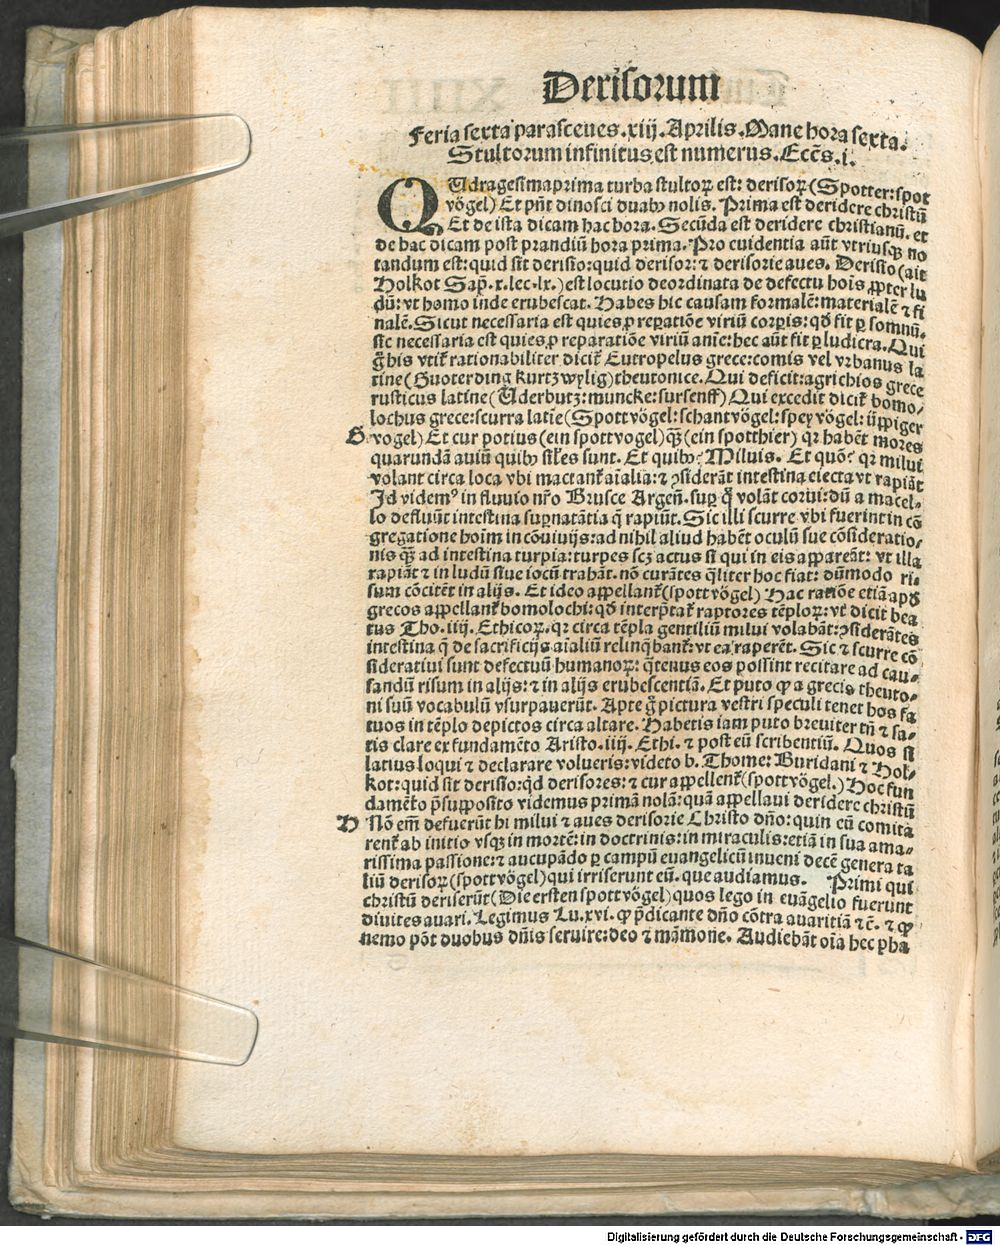 Deriſorum
Feria ſexta paraſceues.xiij.Aprilis.Mane hora ſexta.
Stultorum infinitus eſt numerus.Eccēs.i.
QUadrageſimaprima turba ſtultoꝝ eſt: deriſoꝝ (Spotter:ſpot
vögel) Et pn̄t dinoſci duabꝰ nolis. Prima eſt deridere chriſtū
Et de iſta dicam hac hora. Secūda eſt deridere chriſtianū. et
de hac dicam poſt prandiū hora prima. Pro euidentia aūt vtriuſqꝫ no
tandum eſt:quid ſit deriſio:quid deriſor:⁊ deriſorie aues. Deriſio (ait
Holkot Sap̄.x.lec.lx.) eſt locutio deordinata de defectu hoīs ꝓpter lu
dū: vt homo inde erubeſcat. Habes hic cauſam formalē:materialē ⁊ fi
nalē. Sicut neceſſaria eſt quies ꝓ reꝑatiōe viriū corpīs: qd̄ fit ꝑ ſomnū-
ſic neceſſaria eſt quies ꝓ reparatiōe viriū anīe: hec aūt fit ꝑ ludicra. Qui
g̊ his vtit᷑ rationabiliter dicit᷑ Eutropelus grece:comis vel vrbanus la
tine (Guoter ding kurtzwylig) theutonice. Qui deficit:agrichios grece
ruſticus latine (Uderbutz:muncke:ſurſenff) Qui excedit dicit᷑ bomo-
lochus grece:ſcurra latīe (Spottvögel:ſchantvögel:ſpeyvögel: üppiger
G vogel) Et cur potius (ein ſpottvogel) qꝫ̄ (ein ſpotthier) qꝛ habēt mores
quarundā auiū quibꝰ ſil̄es ſunt. Et quibꝰ? Miluis. Et quō? qꝛ milui
volant circa loca vbi mactant᷑ aīalia:⁊ ꝯſiderāt inteſtina eiecta vt rapiāt
Id videmꝰ in fluuio nr̄o Bruſce Argen̄. ſuꝑ q̄ volāt corui: dū a macel-
lo defluūt inteſtina ſuꝑnatātia q̄ rapiūt. Sic illi ſcurre vbi fuerint in cō
gregatione hoīm in cōuiuijs: ad nihil aliud habēt oculū ſue cōſideratio-
nis qꝫ̄ ad inteſtina turpia: turpes ſcꝫ actus ſi qui in eis apparēāt: vt illa
rapiāt ⁊ in ludū ſiue iocū trahāt. nō curātes q̄liter hoc fiat: dūmodo ri-
ſum cōcitēt in alijs. Et ideo appellant᷑ (ſpottvögel) Hac ratiōe etiā apd̄
grecos appellant᷑ bomolochi: qd̄ interp̄tat᷑ raptores tēploꝝ: vt dicit bea
tus Tho.iiij. Ethicoꝝ. qꝛ circa tēpla gentiliū milui volabāt: ꝯſiderātes
inteſtina q̄ de ſacrificijs aīaliū relinq̄bant᷑: vt ea raperēt. Sic ⁊ ſcurre cō
ſideratiui ſunt defectuū humanoꝝ: q̄tenus eos poſſint recitare ad cau-
ſandū riſum in alijs: ⁊ in alijs erubeſcentiā. Et puto ꝙ a grecis theuto-
ni ſuū vocabulū vſurpauerūt. Apte g̊ pictura veſtri ſpeculi tenet hos fa
tuos in tēplo depictos circa altare. Habetis iam puto breuiter tn̄ ⁊ ſa-
tis clare ex fundamēto Ariſto.iiij. Ethi. ⁊ poſt eū ſcribentiū. Quos ſi
latius loqui ⁊ declarare volueris: videto b. Thome: Buridani ⁊ Hol-
kot: quid ſit deriſio: qd̄ deriſores: ⁊ cur appellent᷑ (ſpottvögel.) Hoc fun
damēto p̄ſuppoſito videmus primā nolā: quā appellaui deridere chriſtū
H Nō em̄ defuerūt hi milui ⁊ aues deriſorie Chriſto dn̄o: quin eū comita
rent᷑ ab initio vſqꝫ in mortē: in doctrinis: in miraculis: etiā in ſua ama-
riſſima paſſione: ⁊ aucupādo ꝑ campū euangelicū inueni decē genera ta
liū deriſoꝝ (ſpottvögel) qui irriſerunt eū. que audiamus. Primi qui
chriſtū deriſerūt (Die erſten ſpottvögel) quos lego in euāgelio fuerunt
diuites auari. Legimus Lu.xvi. ꝙ p̄dicante dn̄o cōtra auaritiā ⁊c̄. ⁊ ꝙ
nemo pōt duobus dn̄is ſeruire: deo ⁊ māmone. Audiebāt oīa hec pha
Digitalisierung gefördert durch die Deutsche Forschungsgemeinschaft - DFG